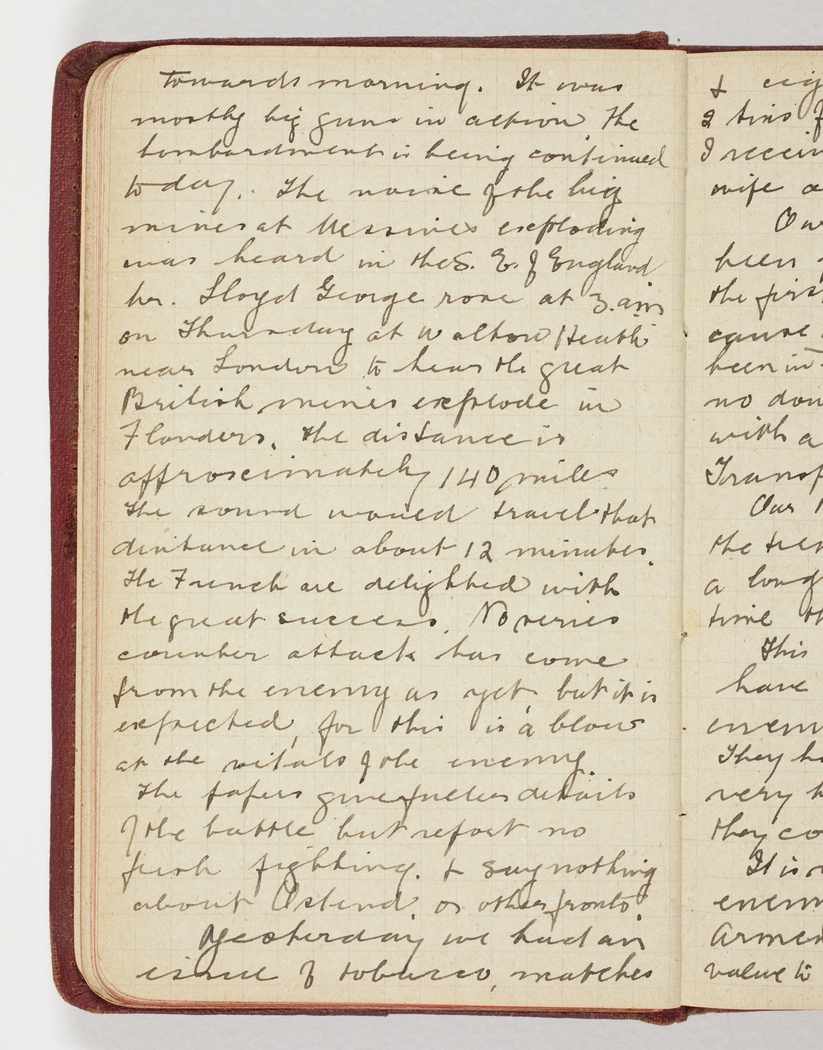 towards morning. It was
mostly big guns in action The
bombardment is being continued
to day. The noise of the big
mines at Messines exploding
was heard in the S. E. of England
Mr. Lloyd George rose at 3. am
on Thursday at Walton Heath
near London to hear the great
British mines explode in
Flanders, the distance is
approximately 140 miles
The sound would travel that
distance in about 12 minutes.
The French are delighted with
the great success. No series
counter attack has come
from the enemy as yet but it is
expected, for this is a blow
at the vitals of the enemy.
The papers give further details
of the battle but report no
fresh fighting. & say nothing
about Ostend or other fronts
Yesterday we had an
issue of tobacco, matches
&
2 tins
I
wife
been
the
cause
been in
no
with a
Our
the
a long
time
This
have
They
very
they
It is
value to